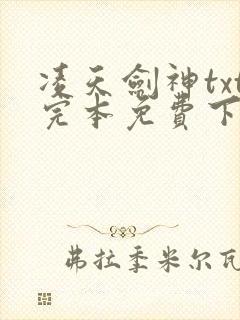 凌天劍神txt
完本免費下
弗拉季米尔瓦